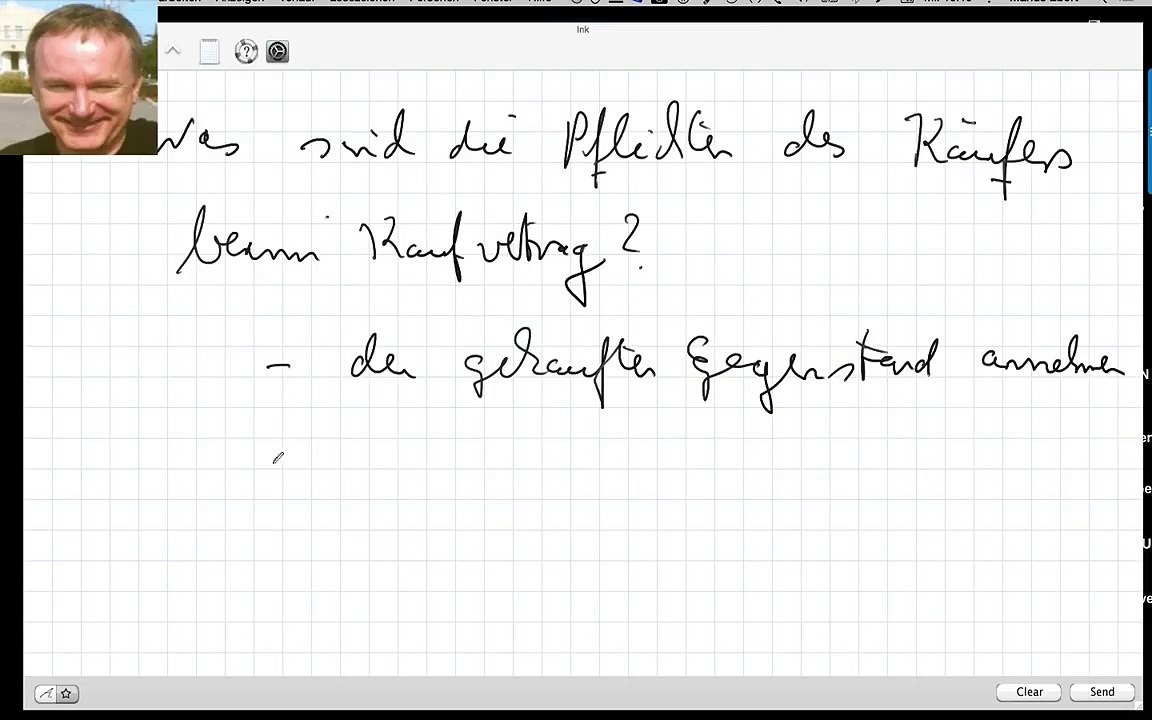 Ink
Was sind die Pflichten des Käufers
beim Kaufvertrag?
- den gekauften Gegenstand annehmen
Clear Send